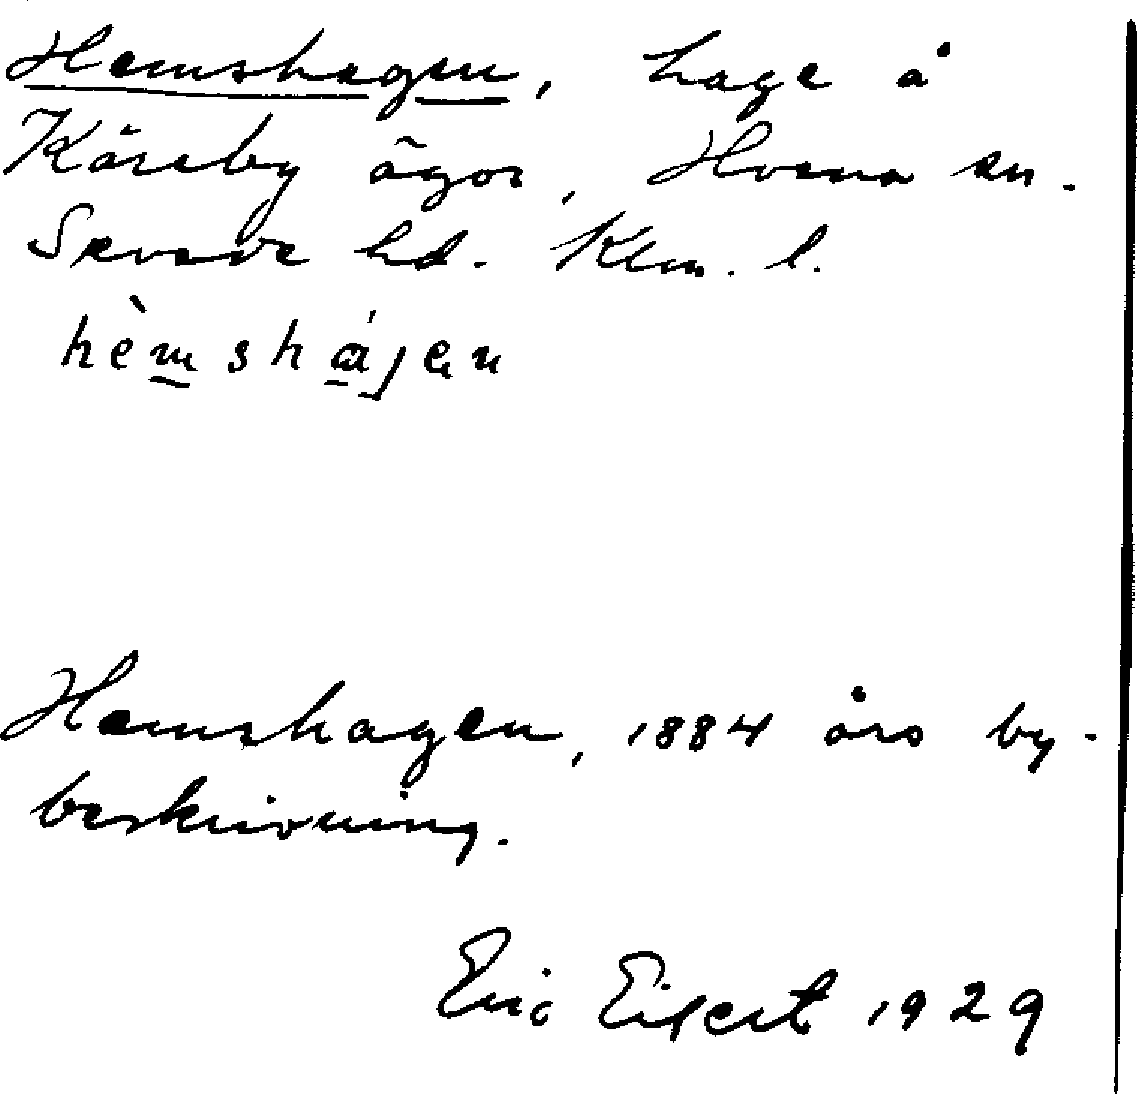 Hemshagen, hage å
Kåreby ägor, Horna sn.
Sevede hd. Klm. l.
hèmshájen
Hemshagen, 1884 års by-
beskrivning.
Eric Eifert 1929